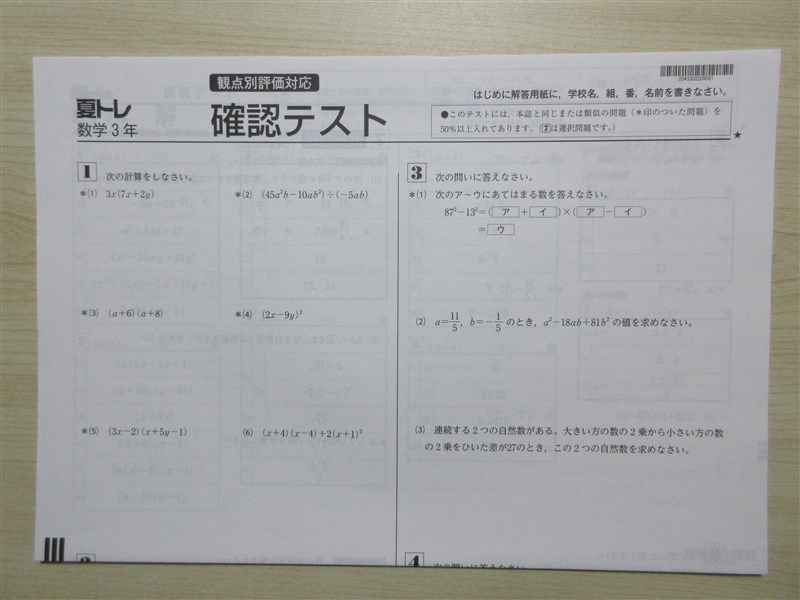 観点別評価対応
夏トレ
数学3年
確認テスト
はじめに解答用紙に，学校名，組，番，名前を書きなさい。
●このテストには，本誌と同じまたは類似の問題（＊印のついた問題）を
50％以上入れてあります。（7は選択問題です。）
★
1 次の計算をしなさい。
＊(1) 3x(7x+2y)
＊(2) (45a²b−10ab²)÷(−5ab)
＊(3) (a+6)(a+8)
＊(4) (2x−9y)²
＊(5) (3x−2)(x+5y−1)
(6) (x+4)(x−4)+2(x+1)²
3 次の問いに答えなさい。
＊(1) 次のア〜ウにあてはまる数を答えなさい。
87²−13²=(ア+イ)×(ア−イ)
=ウ
(2) a=11/5，b=−1/5 のとき，a²−18ab+81b² の値を求めなさい。
(3) 連続する2つの自然数がある。大きい方の数の2乗から小さい方の数
の2乗をひいた差が27のとき，この2つの自然数を求めなさい。
4 次の問いに答えなさい